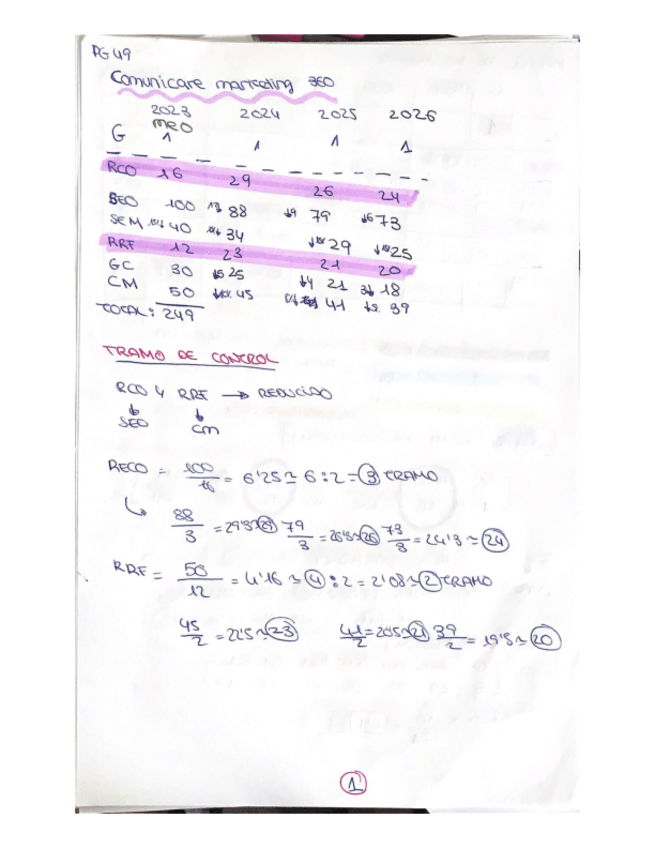 PG 49
Comunicare marketing 360
2023 2024 2025 2026
MEO
G 1 1 1 1
RCO 16 29 26 24
SEO 100 88 ↓9 79 ↓6 73
SEM 40 34 29 25
RRF 12 23 21 20
GC 30 ↓5 25 ↓4 21 3↓ 18
CM 50 45 41 39
TOTAL: 249
TRAMO DE CONTROL
RCO y RRF → REDUCIDO
↓ ↓
SEO CM
RECO = 100/16 = 6'25 ≃ 6 : 2 = 3 TRAMO
88/3 = 29'3 ≃ 29 79/3 = 26'3 ≃ 26 73/3 = 24'3 ≃ 24
RRF = 50/12 = 4'16 ≃ 4 : 2 = 2'08 ≃ 2 TRAMO
45/2 = 22'5 ≃ 23 41/2 = 20'5 ≃ 21 39/2 = 19'5 ≃ 20
1